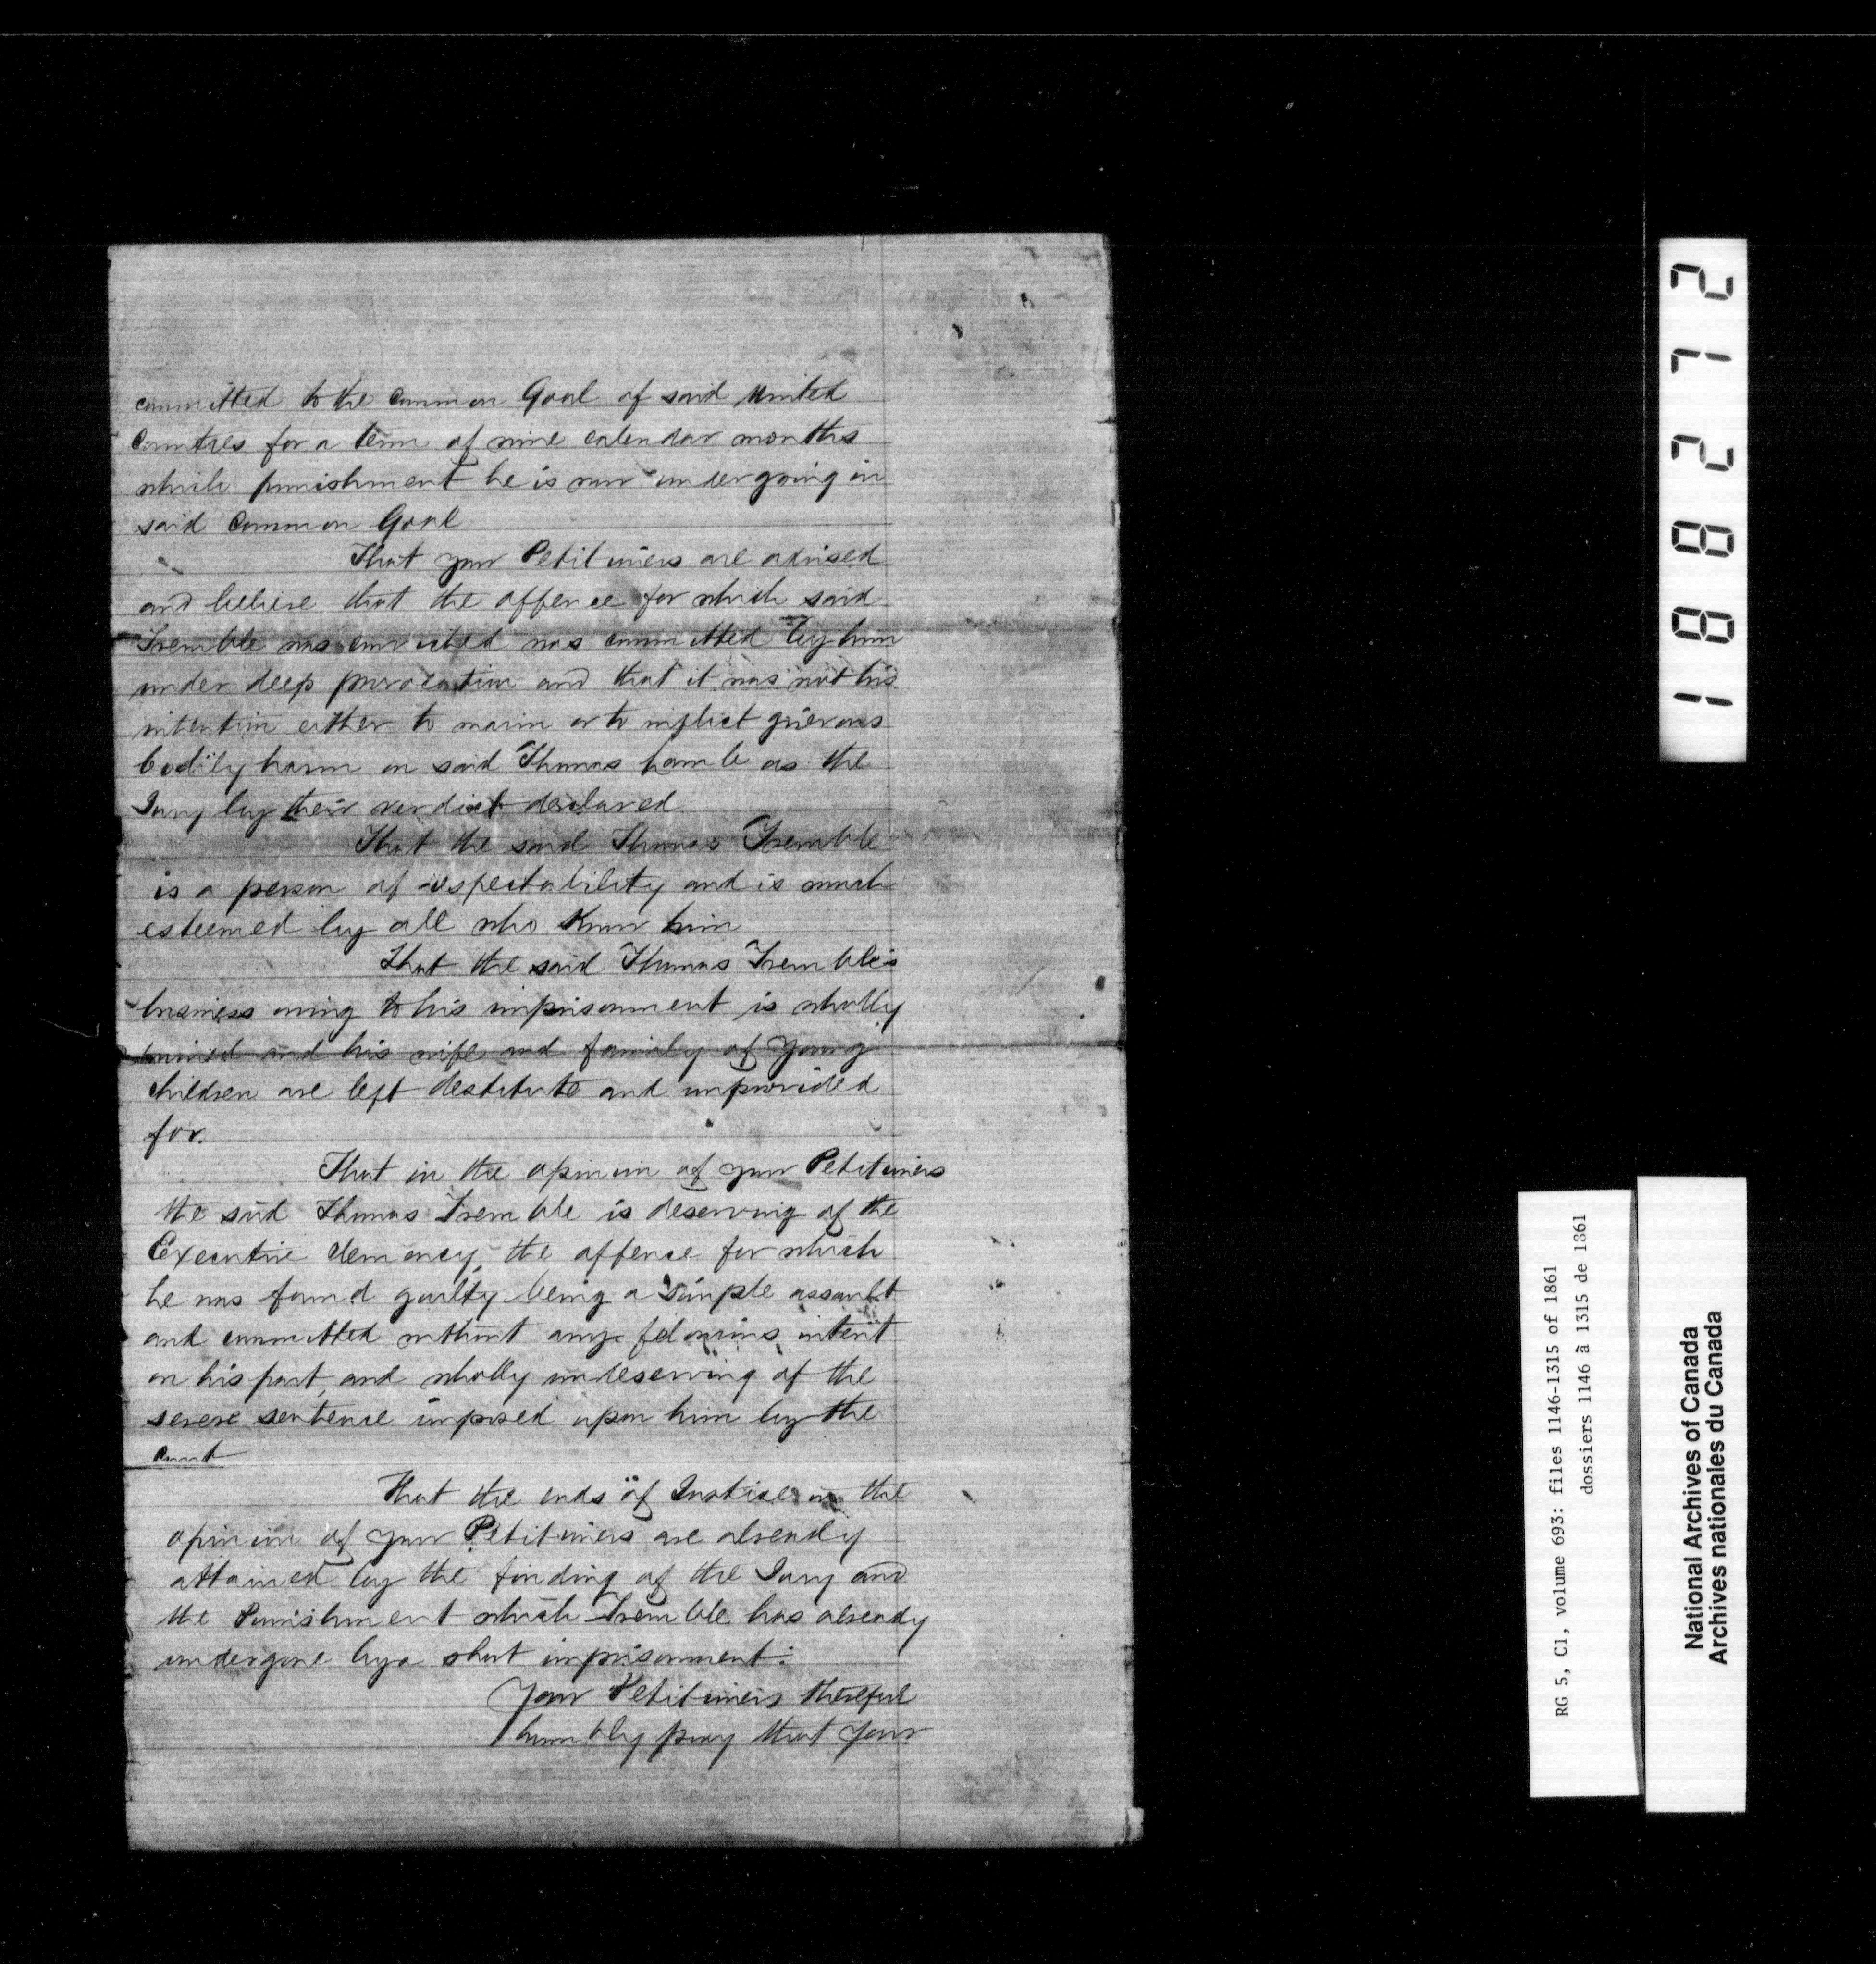 committed to the Common Goal of said United
Counties for a term of nine calendar months
which punishment he is now undergoing in
said Common Goal
That your Petitioners are advised
and believe that the offence for which said
Tremble was convicted was committed by him
under deep provocation and that it was not his
intention either to maim or to inflict grievous
bodily harm on said Thomas as the
Jury by their verdict declared
That the said Thomas Tremble
is a person of respectability and is much
esteemed by all who know him
That the said Thomas Tremble's
business owing to his imprisonment is wholly
ruined and his wife and family of young
children are left destitute and unprovided
for.
That in the opinion of your Petitioners
the said Thomas Tremble is deserving of the
Executive clemency, the offence for which
he was found guilty being a simple assault
and committed without any felonious intent
on his part, and wholly undeserving of the
severe sentence imposed upon him by the
Court
That the ends of Justice in the
opinion of your Petitioners are already
attained by the finding of the Jury and
the Punishment which Tremble has already
undergone by a short imprisonment.
Your Petitioners therefore
humbly pray that your
188272
RG 5, C1, volume 693: files 1146-1315 of 1861
dossiers 1146 à 1315 de 1861
National Archives of Canada
Archives nationales du Canada